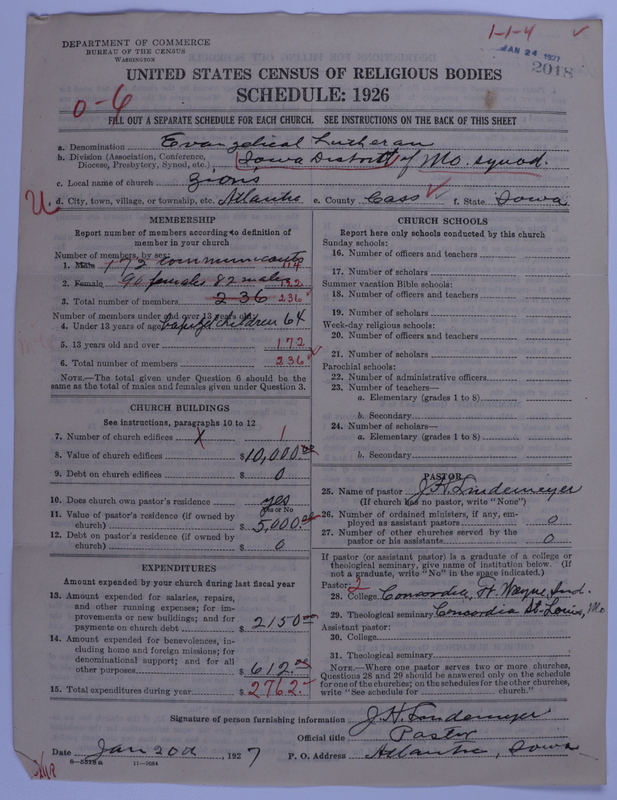 DEPARTMENT OF COMMERCE
BUREAU OF THE CENSUS
WASHINGTON
1-1-4
JAN 24 1927
2018
UNITED STATES CENSUS OF RELIGIOUS BODIES
SCHEDULE: 1926
0-6
FILL OUT A SEPARATE SCHEDULE FOR EACH CHURCH. SEE INSTRUCTIONS ON THE BACK OF THIS SHEET
a. Denomination Evangelical Lutheran
b. Division (Association, Conference, Diocese, Presbytery, Synod, etc.) Iowa District of Mo. synod.
c. Local name of church Zion's
U.
d. City, town, village, or township, etc. Atlantic e. County Cass f. State Iowa
MEMBERSHIP
Report number of members according to definition of
member in your church
Number of members, by sex:
1. Male 172 communicants 114
2. Female 90 females 82 males 122
3. Total number of members 236 236
Number of members under and over 13 years old:
4. Under 13 years of age baptized children 64
5. 13 years old and over 172
6. Total number of members 236
NOTE.—The total given under Question 6 should be the
same as the total of males and females given under Question 3.
CHURCH BUILDINGS
See instructions, paragraphs 10 to 12
7. Number of church edifices 1
8. Value of church edifices $10,000.00
9. Debt on church edifices $ 0
10. Does church own pastor's residence yes
Yes or No
11. Value of pastor's residence (if owned by
church) $5,000.00
12. Debt on pastor's residence (if owned by
church) $ 0
EXPENDITURES
Amount expended by your church during last fiscal year
13. Amount expended for salaries, repairs,
and other running expenses; for im-
provements or new buildings; and for
payments on church debt $ 2150.00
14. Amount expended for benevolences, in-
cluding home and foreign missions; for
denominational support; and for all
other purposes $ 612.00
15. Total expenditures during year $ 2762.
CHURCH SCHOOLS
Report here only schools conducted by this church
Sunday schools:
16. Number of officers and teachers
17. Number of scholars
Summer vacation Bible schools:
18. Number of officers and teachers
19. Number of scholars
Week-day religious schools:
20. Number of officers and teachers
21. Number of scholars
Parochial schools:
22. Number of administrative officers
23. Number of teachers—
a. Elementary (grades 1 to 8)
b. Secondary
24. Number of scholars—
a. Elementary (grades 1 to 8)
b. Secondary
PASTOR
25. Name of pastor J. H. Lindemeyer
(If church has no pastor, write "None")
26. Number of ordained ministers, if any, em-
ployed as assistant pastors 0
27. Number of other churches served by the
pastor or his assistants 0
If pastor (or assistant pastor) is a graduate of a college or
theological seminary, give name of institution below. (If
not a graduate, write "No" in the space indicated.)
Pastor: 2
28. College Concordia, Ft. Wayne, Ind.
29. Theological seminary Concordia St. Louis, Mo
Assistant pastor:
30. College
31. Theological seminary
NOTE.—Where one pastor serves two or more churches,
Questions 28 and 29 should be answered only on the schedule
for one of the churches; on the schedules for the other churches,
write "See schedule for church."
Signature of person furnishing information J. H. Lindemeyer
Official title Pastor
Date Jan 20th, 1927 P. O. Address Atlantic, Iowa
8-5519a 11-9084